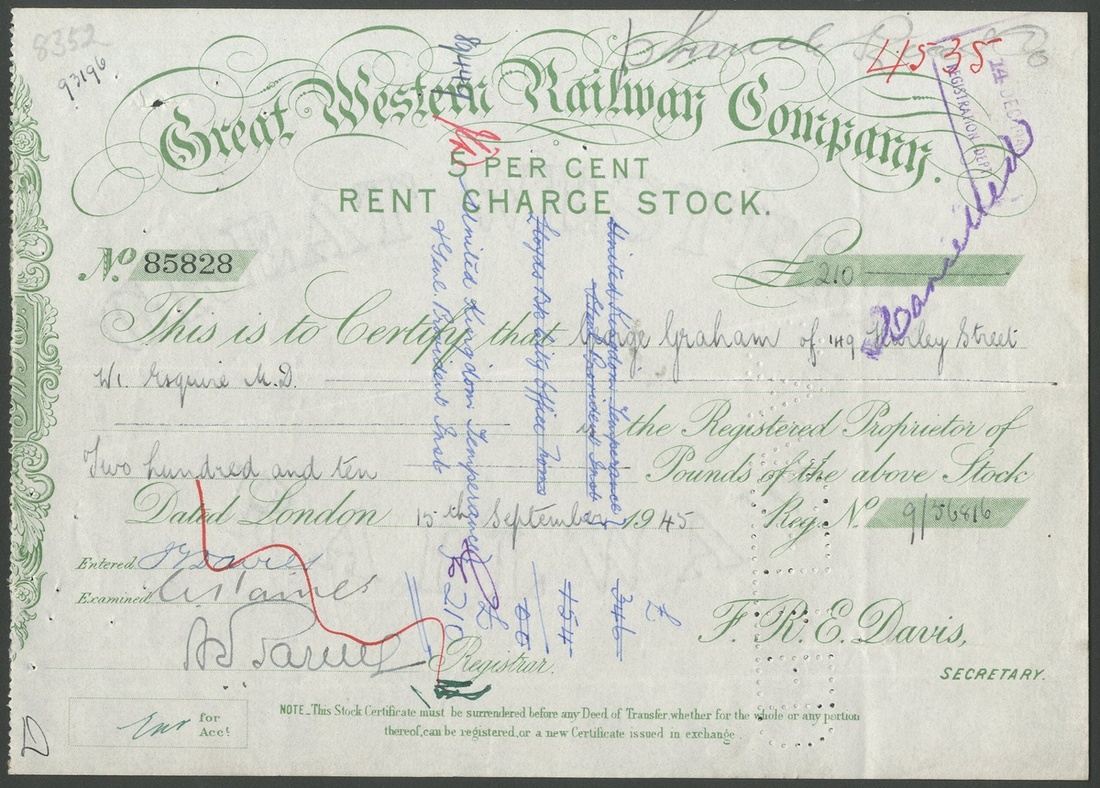 8352
93196
41535
REGISTRATION DEPT
14 DEC
Cancelled
Great Western Railway Company.
5 PER CENT
RENT CHARGE STOCK.
No 85828
£ 210
This is to Certify that George Graham of 149 Harley Street
W1. Esquire M.D.
is the Registered Proprietor of
Two hundred and ten Pounds of the above Stock
Dated London 15th September 1945 Reg. No 9/56816
Entered J Davies
Examined
Registrar.
F. R. E. Davis,
SECRETARY.
NOTE_This Stock Certificate must be surrendered before any Deed of Transfer, whether for the whole or any portion
thereof, can be registered, or a new Certificate issued in exchange.
for
Acct
United Kingdom Temperance
& Genl. Provident Inst
£ 210
Lloyds Bk City Office Noms
United Kingdom Temperance
& Genl Provident Inst
£
346
154